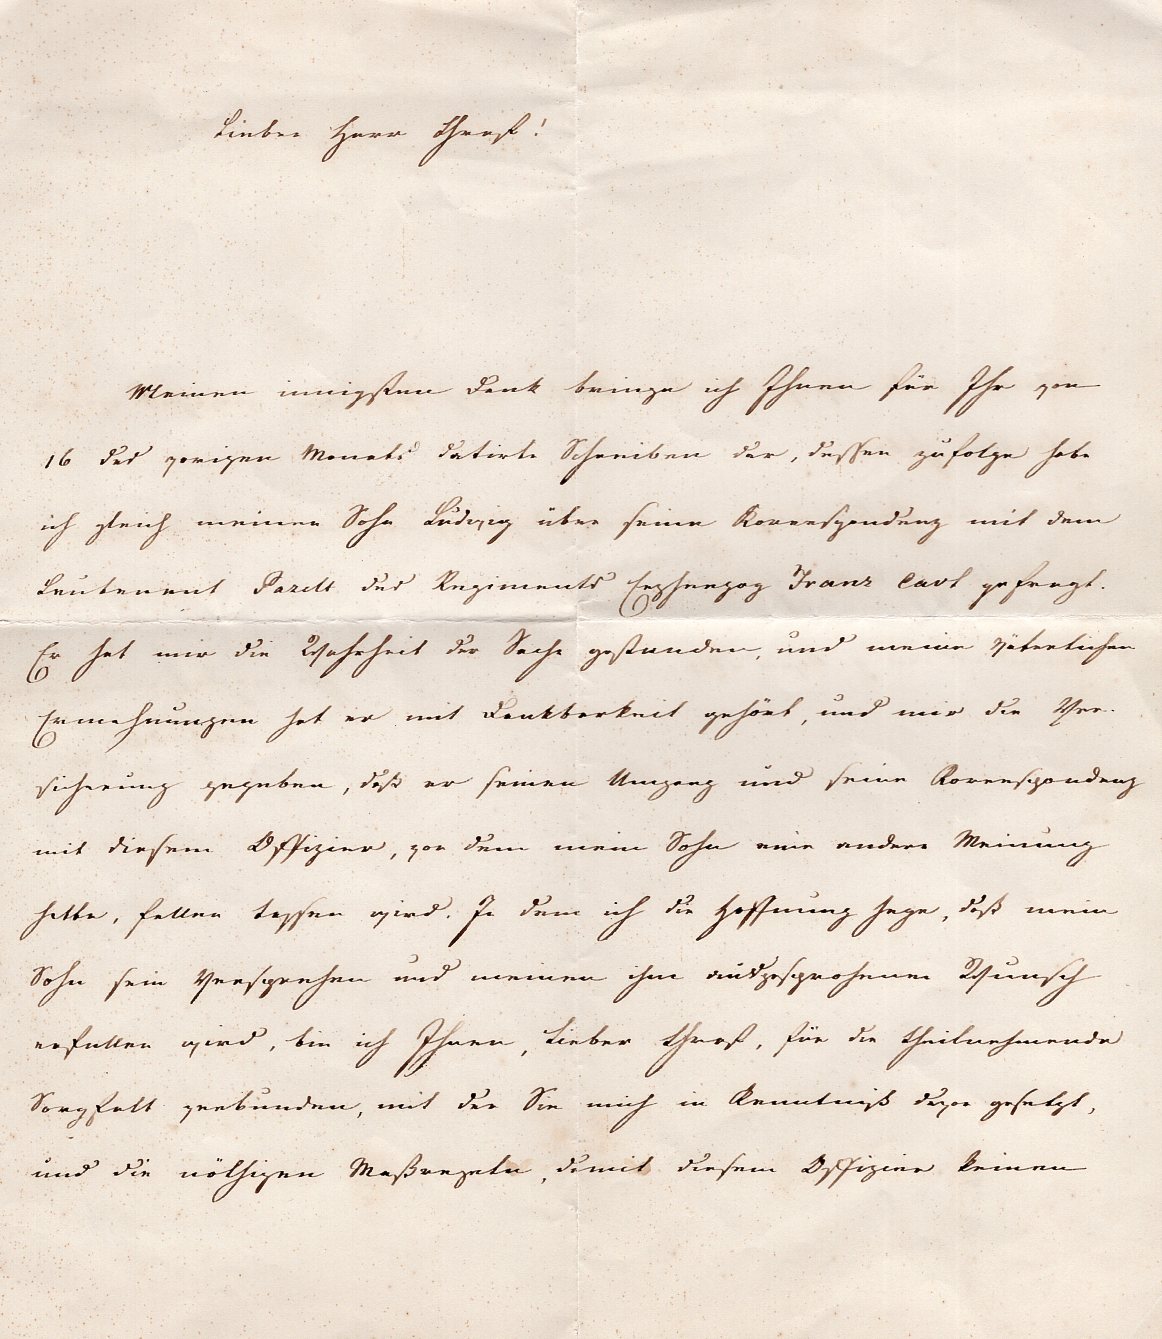 Lieber Herr
Meinen innigsten Dank bringe ich Ihnen für Ihr von
16 des vorigen Monats datirte Schreiben dar, dessen zufolge habe
ich gleich meinen Sohn Ludwig über seine Korrespondenz mit dem
Leutenant des Regiments Erzherzog Franz Carl gefragt.
Er hat mir die Wahrheit der Sache gestanden, und meine väterlichen
Ermahnungen hat er mit Dankbarkeit gehört, und mir die Ver-
sicherung gegeben, daß er seinen Umgang und seine Korrespondenz
mit diesem Offizier, von dem mein Sohn eine andere Meinung
hatte, fallen lassen wird. In dem ich die Hoffnung hege, daß mein
Sohn sein Versprehen und meinen ihm ausgesprohenen Wunsch
erfullen wird, bin ich Ihnen, Lieber für die theilnehmende
Sorgfalt verbunden, mit der Sie mich in Kenntniß davon gesetzt,
und die nöthigen Maßregeln, damit diesem Offizier keinen